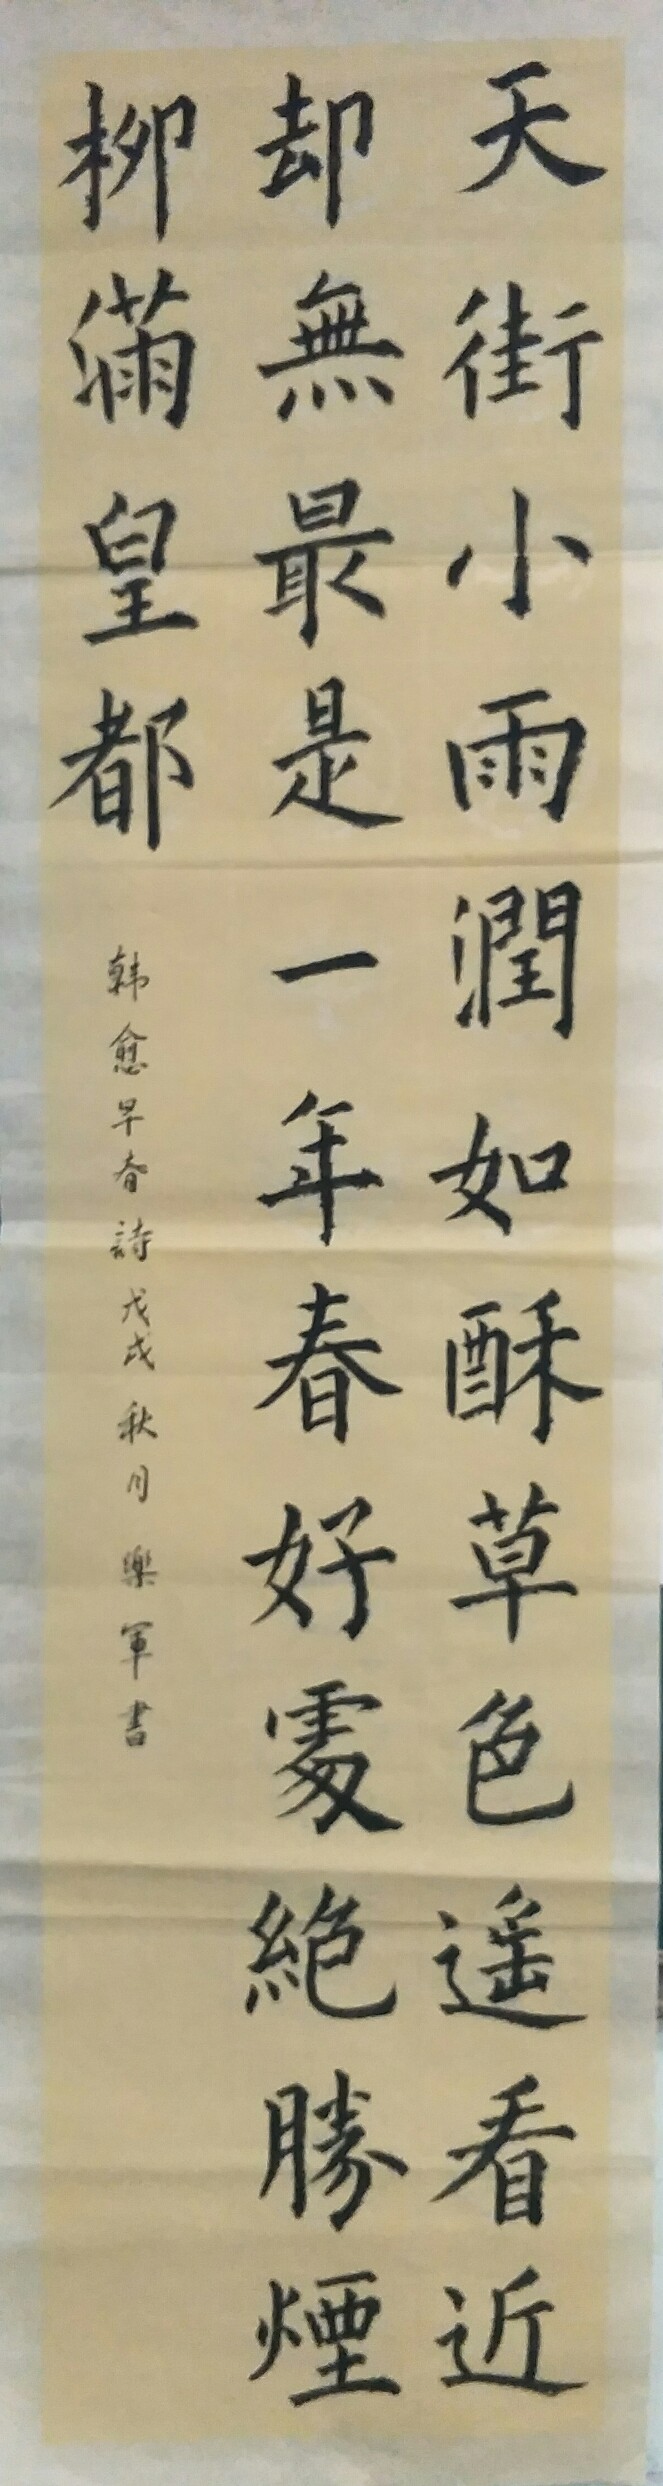 天街小雨潤如酥草色遥看近
却無最是一年春好處絶勝煙
柳滿皇都
韩愈早春詩戊戌秋月樂軍書